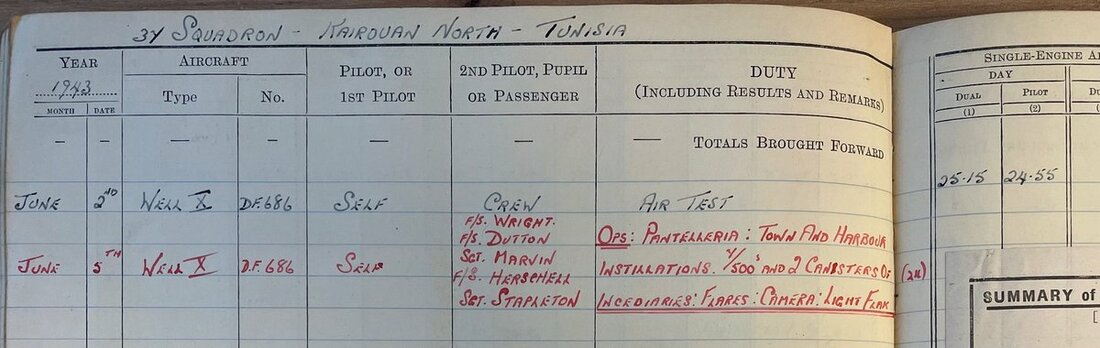 37 SQUADRON - KAIROUAN NORTH - TUNISIA
YEAR AIRCRAFT PILOT, OR 2ND PILOT, PUPIL DUTY SINGLE-ENGINE
1943 Type No. 1ST PILOT OR PASSENGER (INCLUDING RESULTS AND REMARKS) DAY
MONTH DATE DUAL PILOT
(1) (2)
— — — — — — TOTALS BROUGHT FORWARD
25.15 24.55
JUNE 2ND WELL X DF.686 SELF CREW AIR TEST
F/S. WRIGHT.
F/S. DUTTON OPS: PANTELLERIA: TOWN AND HARBOUR
SGT. MARVIN
JUNE 5TH WELL X D.F. 686 SELF F/S. HERSCHELL INSTILLATIONS. /500s AND 2 CANISTERS OF
SGT. STAPLETON INCEDIARIES: FLARES: CAMERA: LIGHT FLAK
SUMMARY of